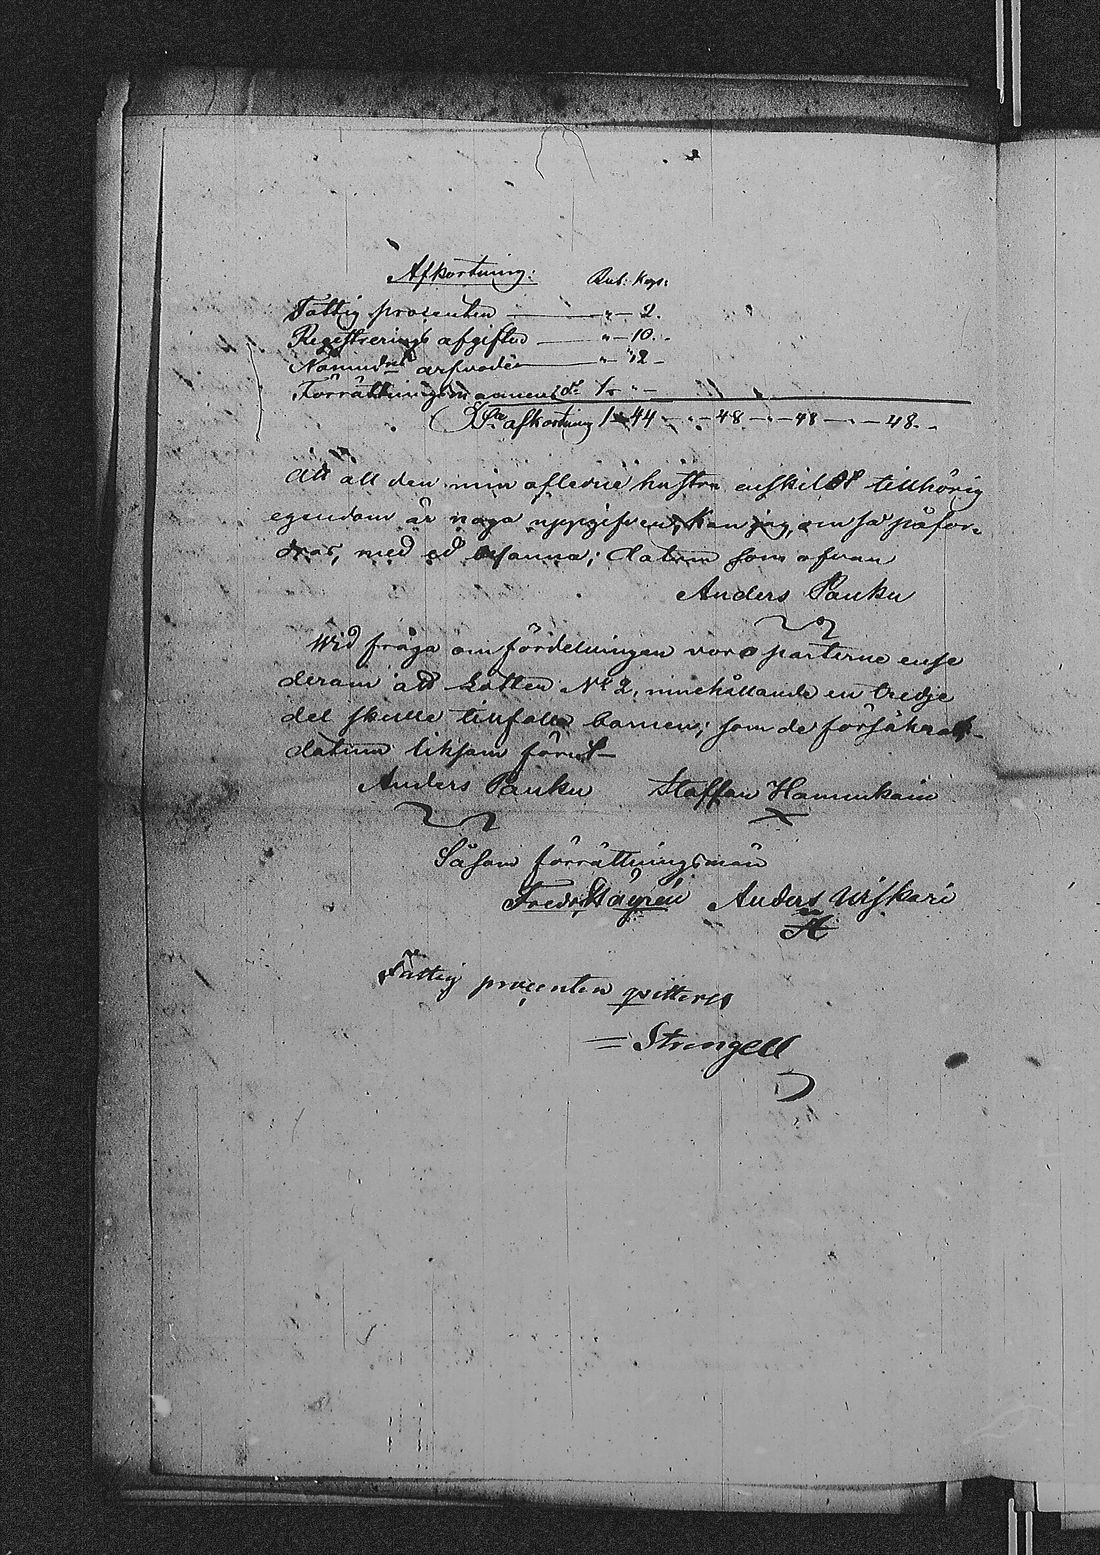 Afkortning: Rub: Kop:
Fattig procenten — " — 2.
Registrerings afgiften — " — 10.
Nämndens arfvode — " — 32 —
Förrättningsmannens do 1 " —
S:a afkortning 1 44 — " — 48 — " — 48 — " — 48.
Att all den min aflidne hustru enskildt tillhörig
egendom är noga uppgifven, kan jag, om så påfor-
dras, med ed besanna; datum som ofvan
Anders Pauku
Wid fråga om fördelningen voro parterne ense
derom att Lotten No 2, innehållande en tredje
del skulle tillfalla barnen; som de försäkrat
datum liksom förut —
Anders Pauku Staffan Hannukain
Såsom förrättningsmän
Fredr. Anders Uiskari
Fattig procenten qvitteras
Strengell